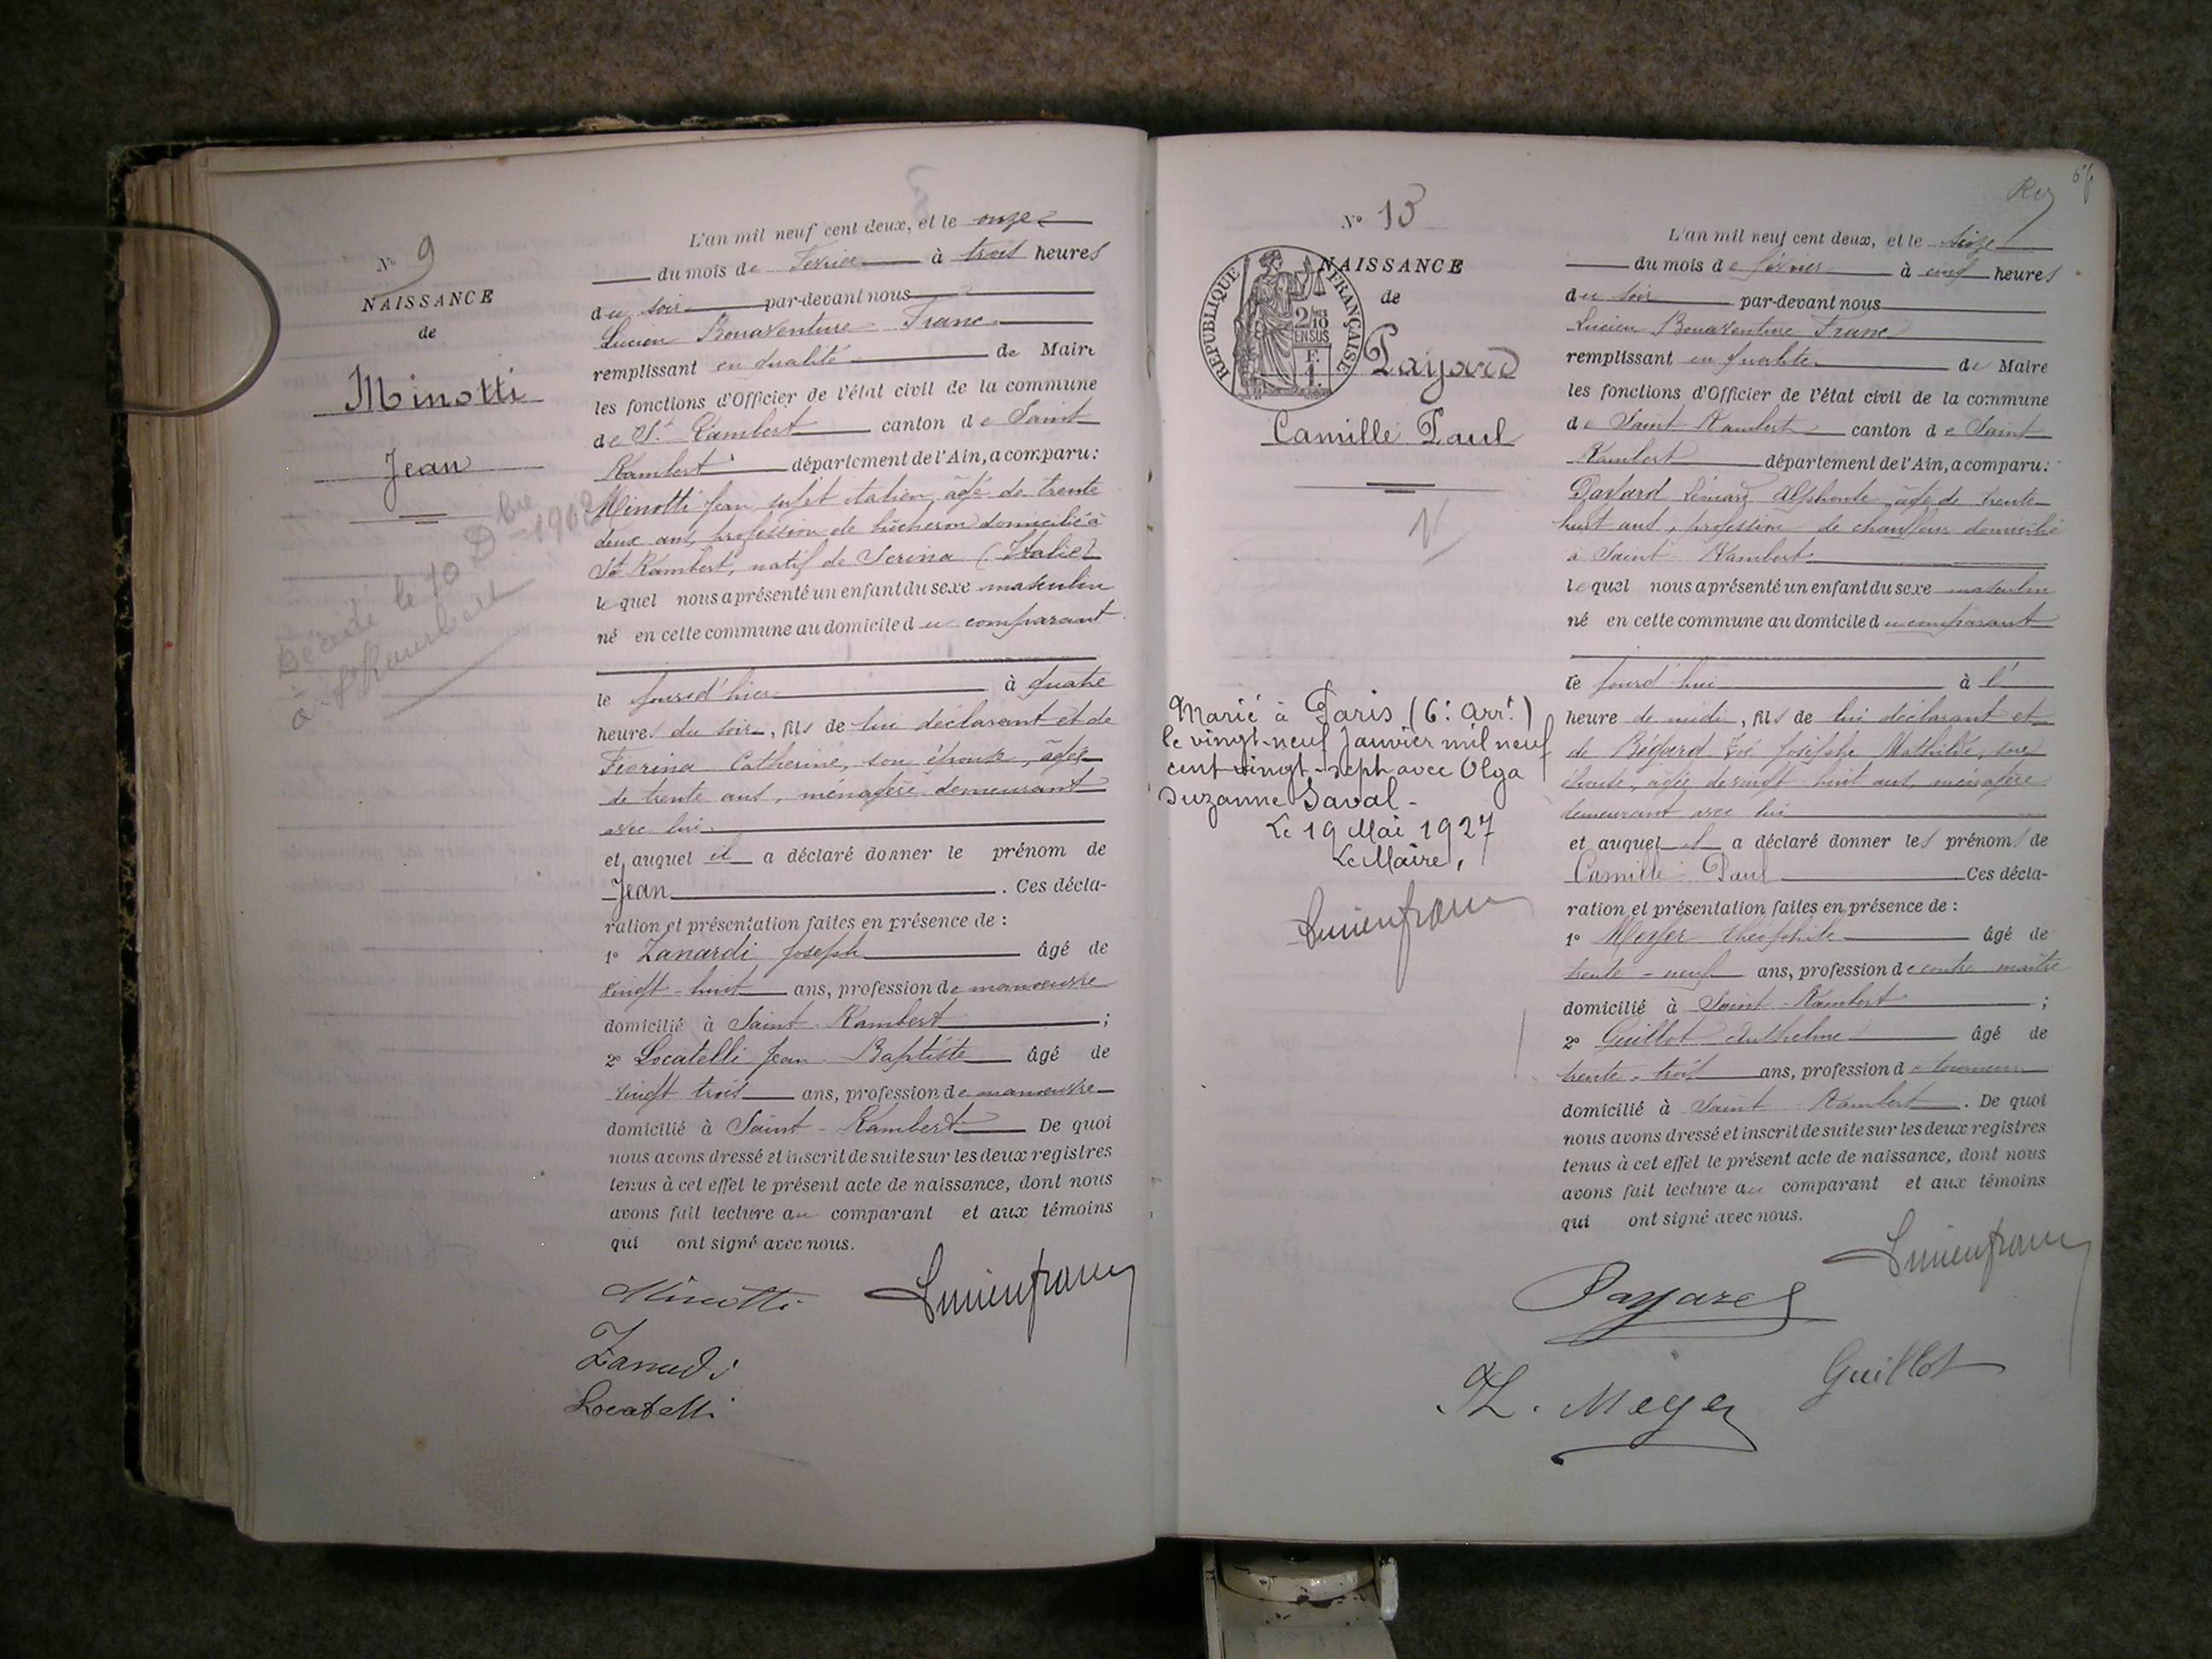 Nº 9
NAISSANCE
de
Minotti
Jean
Décédé le 10 Dbre 1902
à St Rambert
L'an mil neuf cent deux, et le onze
du mois de Février à trois heures
du soir par-devant nous
Lucien Bonaventure Franc
remplissant en qualité de Maire
les fonctions d'Officier de l'état civil de la commune
de St. Rambert canton de Saint
Rambert département de l'Ain, a comparu:
Minotti Jean, sujet italien, âgé de trente
deux ans, profession de bûcheron domicilié à
St Rambert, natif de Serina (Italie)
lequel nous a présenté un enfant du sexe masculin
né en cette commune au domicile du comparant
le jourd'hier à quatre
heures du soir, fils de lui déclarant et de
Fiorina Catherine, son épouse, âgée
de trente ans, ménagère demeurant
avec lui
et auquel il a déclaré donner le prénom de
Jean . Ces décla-
ration et présentation faites en présence de :
1º Zanardi Joseph âgé de
vingt-huit ans, profession de manoeuvre
domicilié à Saint-Rambert ;
2º Locatelli Jean-Baptiste âgé de
vingt trois ans, profession de manoeuvre
domicilié à Saint-Rambert De quoi
nous avons dressé et inscrit de suite sur les deux registres
tenus à cet effet le présent acte de naissance, dont nous
avons fait lecture au comparant et aux témoins
qui ont signé avec nous.
Minotti Lucien franc
Zanardi
Locatelli
Nº 13
NAISSANCE
de
RÉPUBLIQUE FRANÇAISE
2/10 MES
EN SUS
F.
1.
Payard
Camille Paul
Marié à Paris (6e arrt)
le vingt-neuf Janvier mil neuf
cent vingt-sept avec Olga
Suzanne Saval-
Le 19 Mai 1927
Le Maire,
Lucien franc
L'an mil neuf cent deux, et le seize
du mois de février à cinq heures
du soir par-devant nous
Lucien Bonaventure Franc
remplissant en qualité de Maire
les fonctions d'Officier de l'état civil de la commune
de Saint Rambert canton de Saint
Rambert département de l'Ain, a comparu:
Payard Léonard Alphonse, âgé de trente
huit ans, profession de chauffeur domicilié
à Saint Rambert
lequel nous a présenté un enfant du sexe masculin
né en cette commune au domicile du comparant
le jourd'hui à l'
heure de midi, fils de lui déclarant et
de Zoé Josèphe Mathilde, son
épouse, âgée de vingt-huit ans, ménagère
demeurant avec lui
et auquel il a déclaré donner les prénoms de
Camille-Paul Ces décla-
ration et présentation faites en présence de :
1º Meyer Théophile âgé de
trente-neuf ans, profession de contre maître
domicilié à Saint-Rambert ;
2º Guillot Anthelme âgé de
trente-trois ans, profession de tourneur
domicilié à Saint Rambert . De quoi
nous avons dressé et inscrit de suite sur les deux registres
tenus à cet effet le présent acte de naissance, dont nous
avons fait lecture au comparant et aux témoins
qui ont signé avec nous.
Lucien franc
Payard
Th. Meyer Guillot